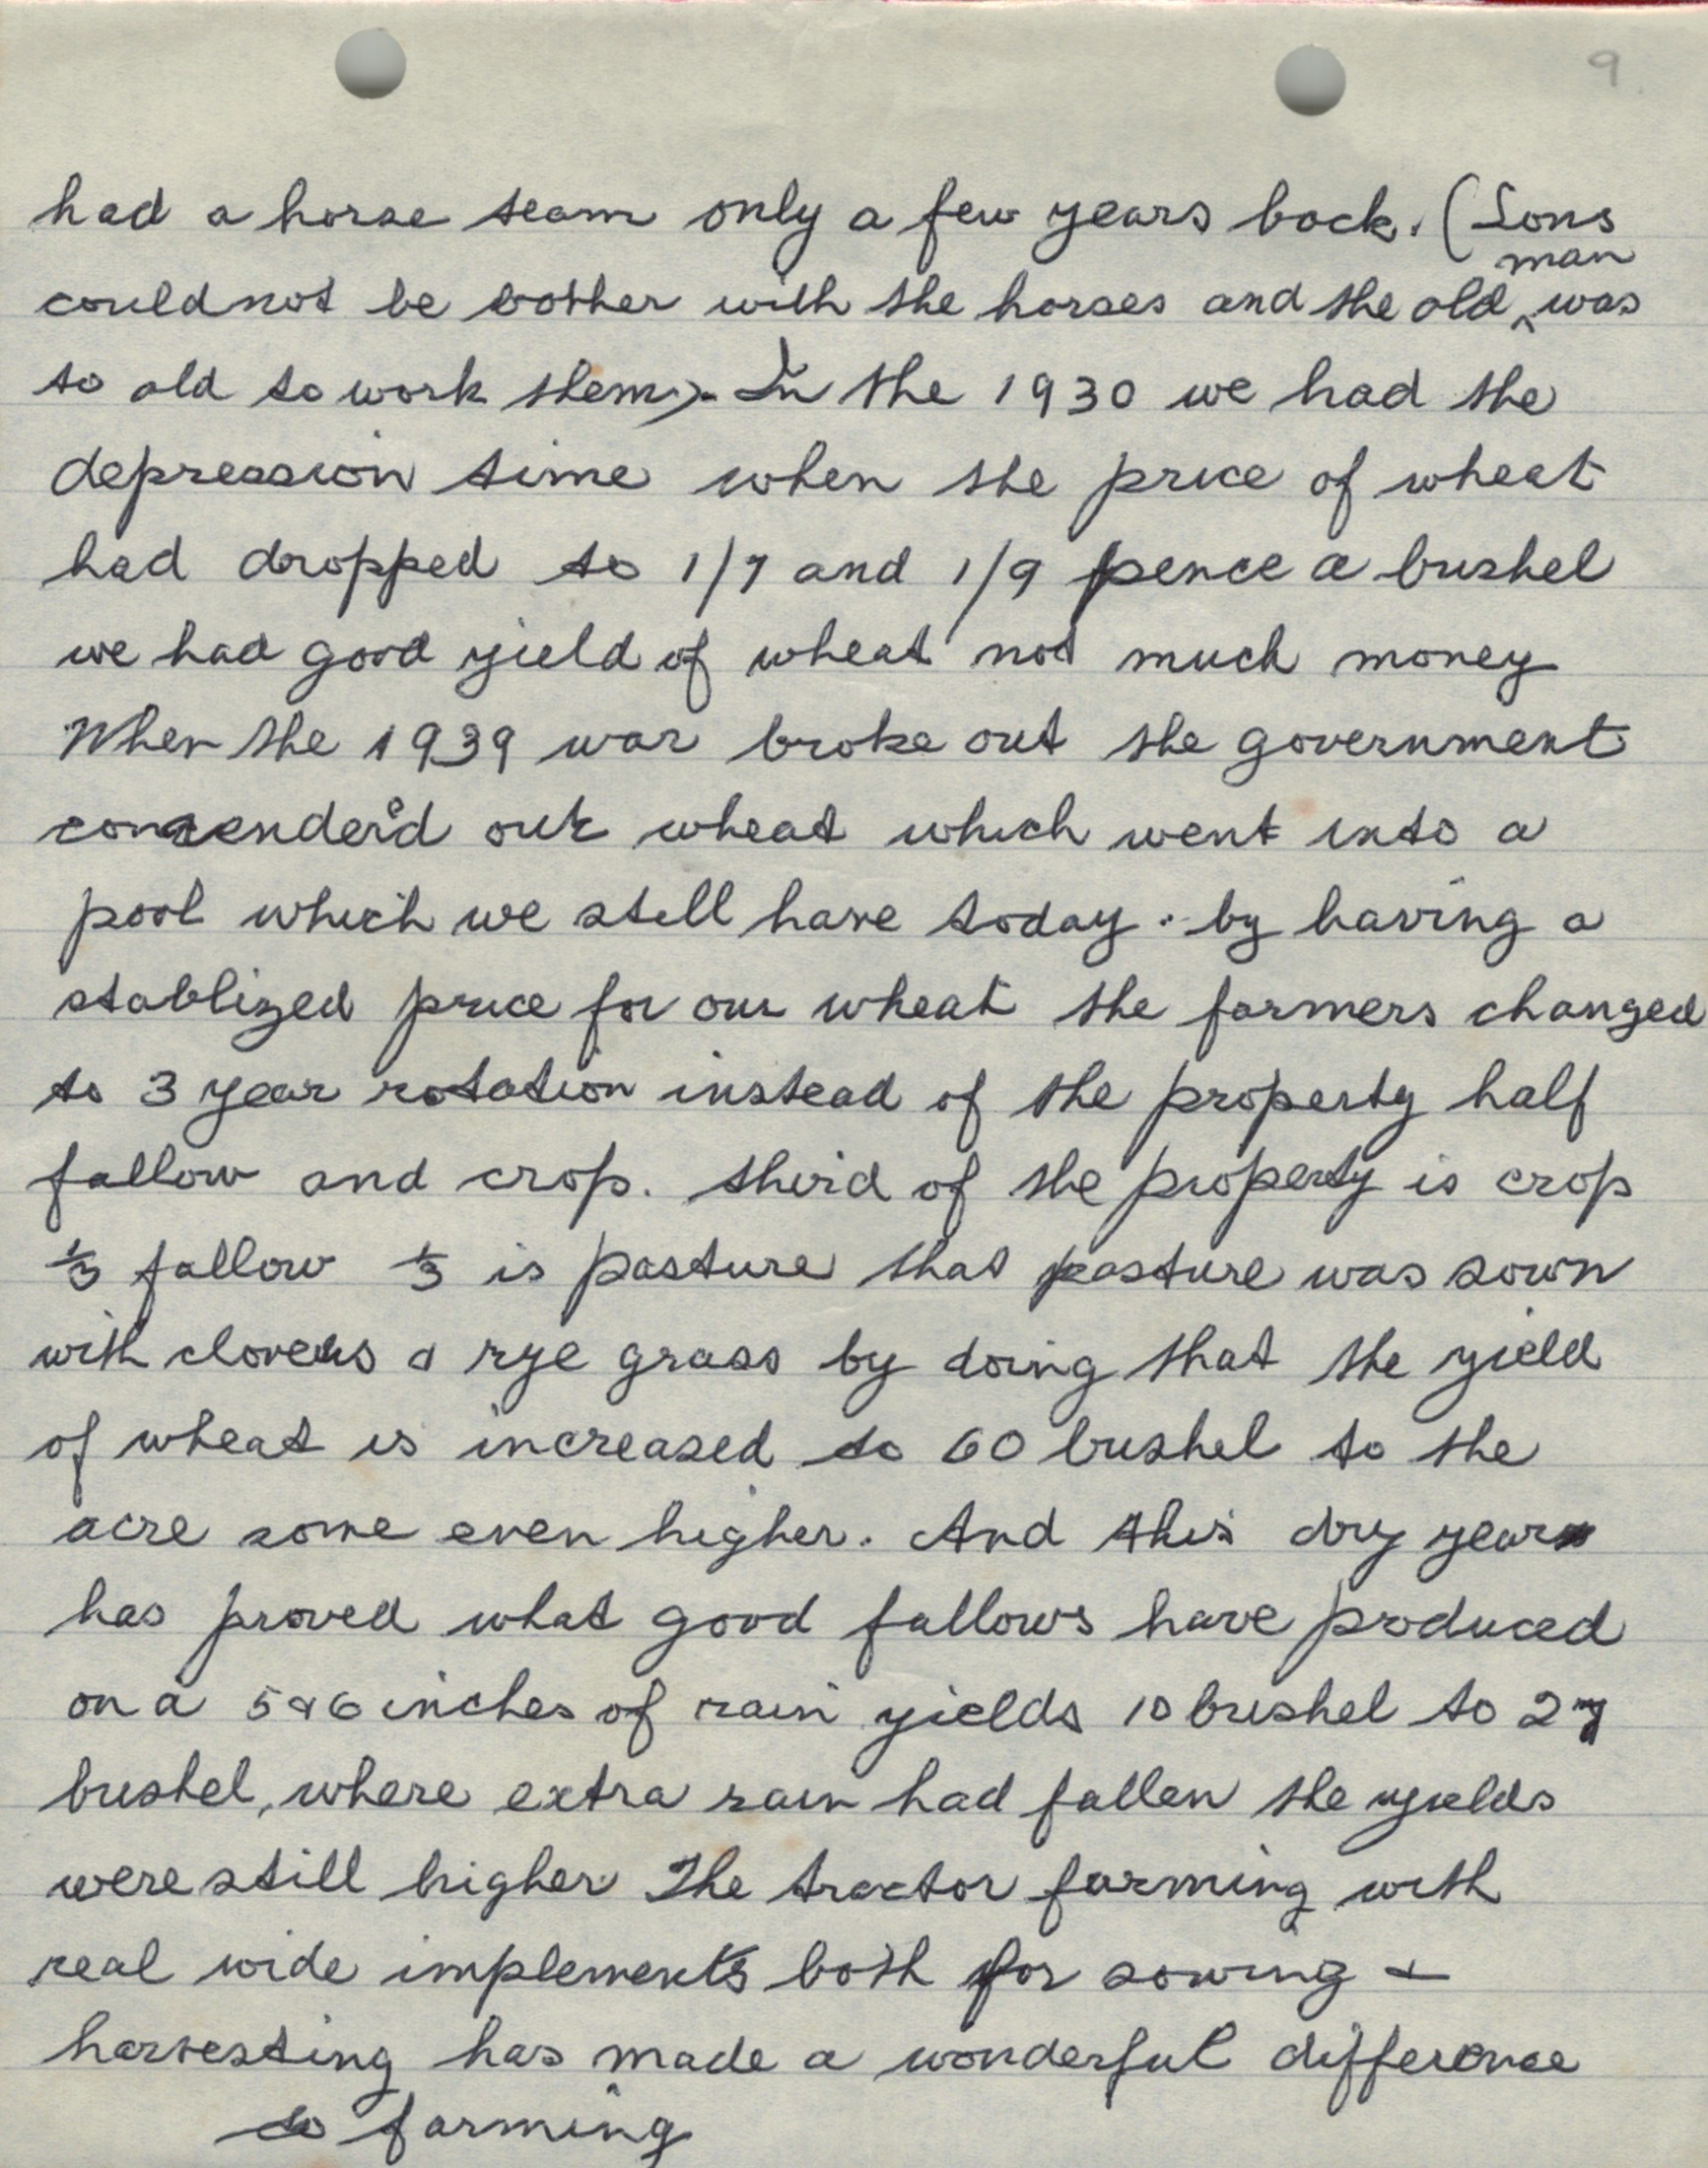 9
had a horse team only a few years back. (Sons
could not be bother with the horses and the old man was
to old to work them). In the 1930 we had the
depression time when the price of wheat
had dropped to 1/7 and 1/9 pence a bushel
we had good yield of wheat not much money
When the 1939 war broke out the government
our wheat which went into a
pool which we still have today. by having a
stablized price for our wheat the farmers changed
to 3 year rotation instead of the property half
fallow and crop. third of the property is crop
1/3 fallow 1/3 is pasture that pasture was sown
with clovers & rye grass by doing that the yield
of wheat is increased to 60 bushel to the
acre some even higher. And this dry year
has proved what good fallows have produced
on a 5 & 6 inches of rain yields 10 bushel to 27
bushel, where extra rain had fallen the yields
were still higher The tractor farming with
real wide implements both for sowing &
harvesting has made a wonderful difference
to farming